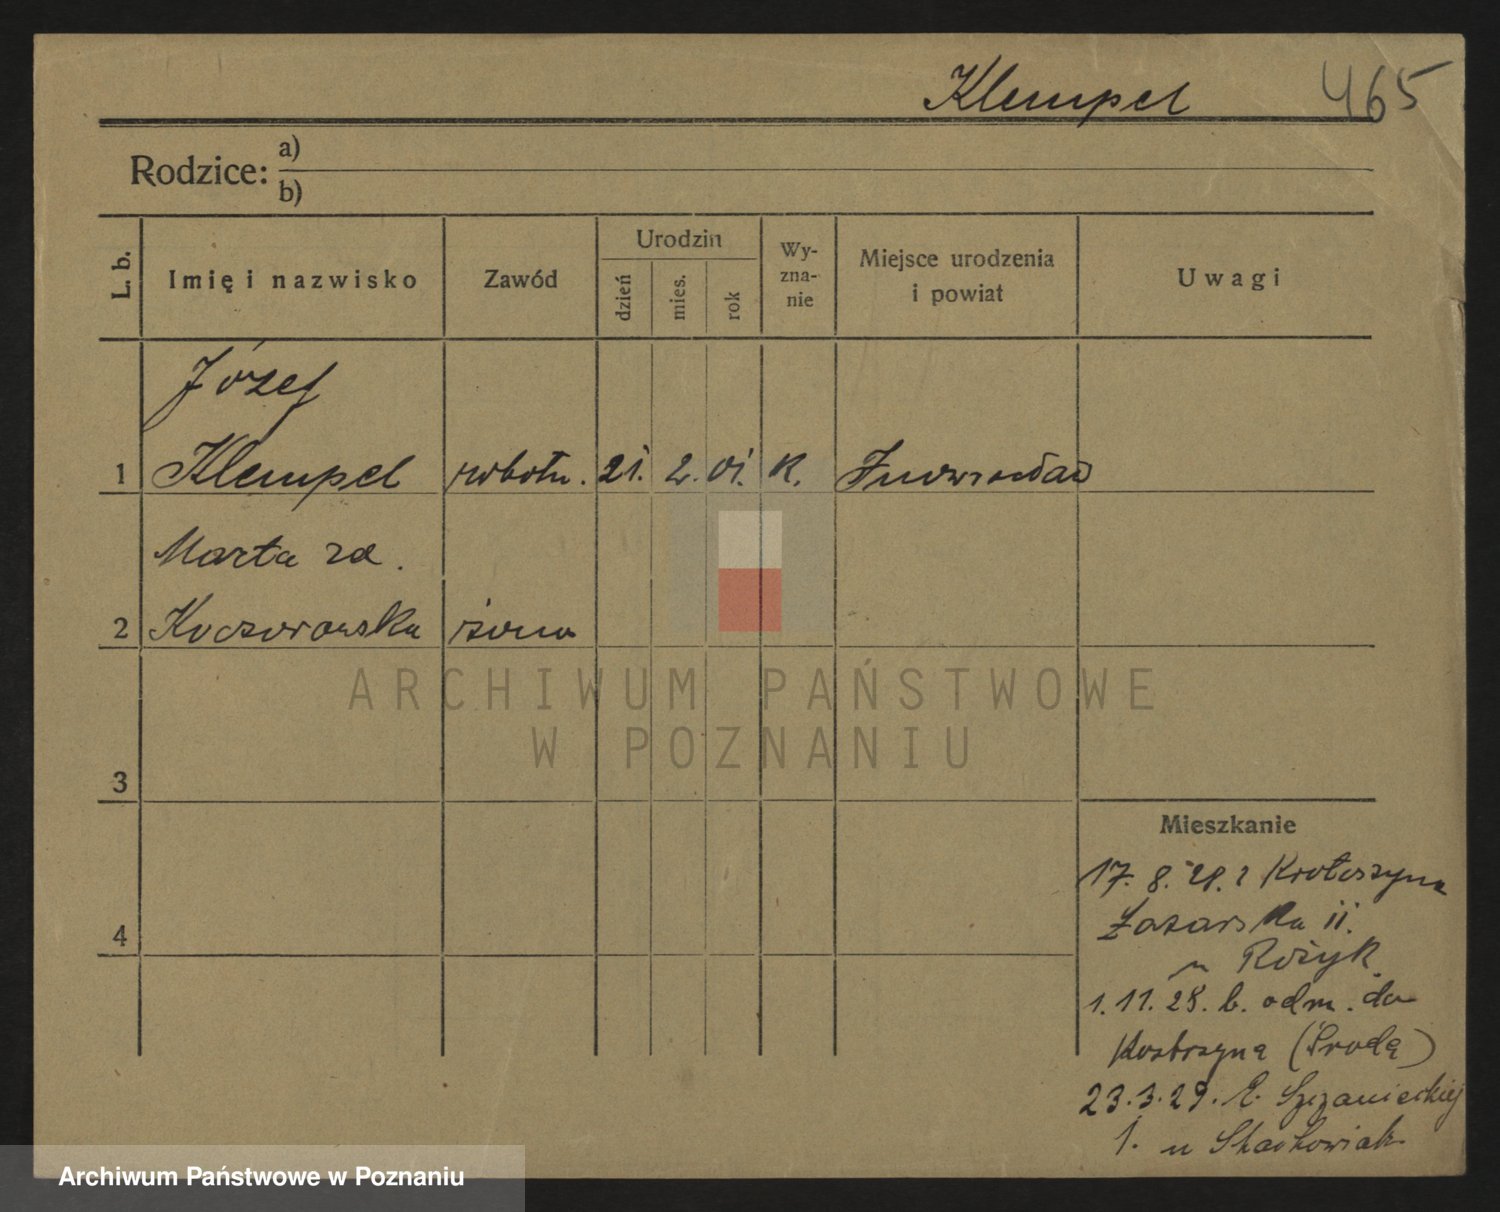 Klempel 465
Rodzice: a)
b)
L. b. Imię i nazwisko Zawód Urodzin dzień mies. rok Wy-zna-nie Miejsce urodzenia i powiat Uwagi
Józef
1 Klempel robotn. 21. 2. 01. K. Inowrocław
Marta zd.
2 Koczorowska żona
3
4
ARCHIWUM PAŃSTWOWE
W POZNANIU
Mieszkanie
17. 8. 28. z Krotoszyna
Łazarska 11.
u Rożyk
1. 11. 28. b. odm. do
Kostrzyna (Środa)
23. 3. 29. E. Szczanieckiej
1. u Stachowiak
Archiwum Państwowe w Poznaniu